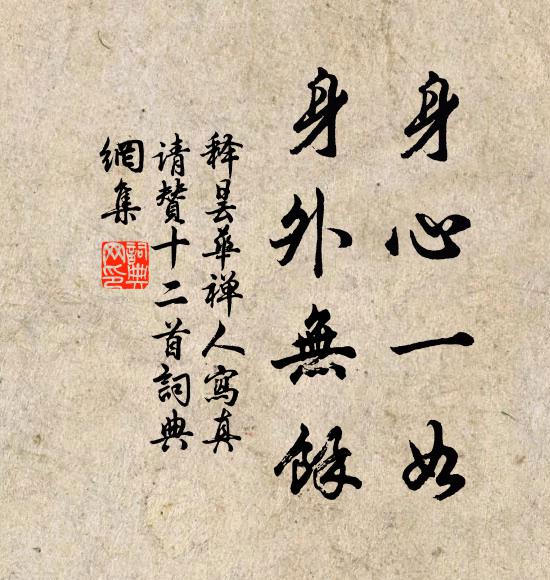 身心一如
身外無餘
释昙华禅人寫真
请贊十二首詞典
網集
詞典
网印